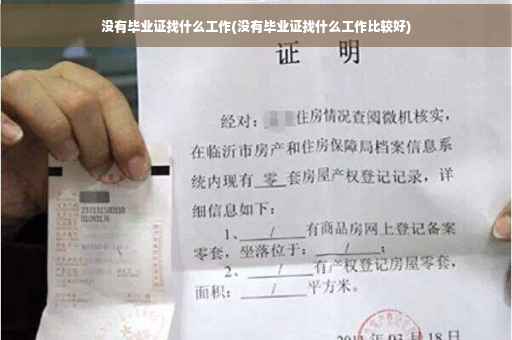 没有毕业证找什么工作(没有毕业证找什么工作比较好)
证 明
经对: 住房情况查阅微机核实,
在临沂市房产和住房保障局档案信息系
统内现有 零 套房屋产权登记记录, 详
细信息如下:
1、 / 有商品房网上登记备案
零套, 坐落位于: / ;
2、 / 有产权登记房屋零套,
面积: / 平方米。
03月18日